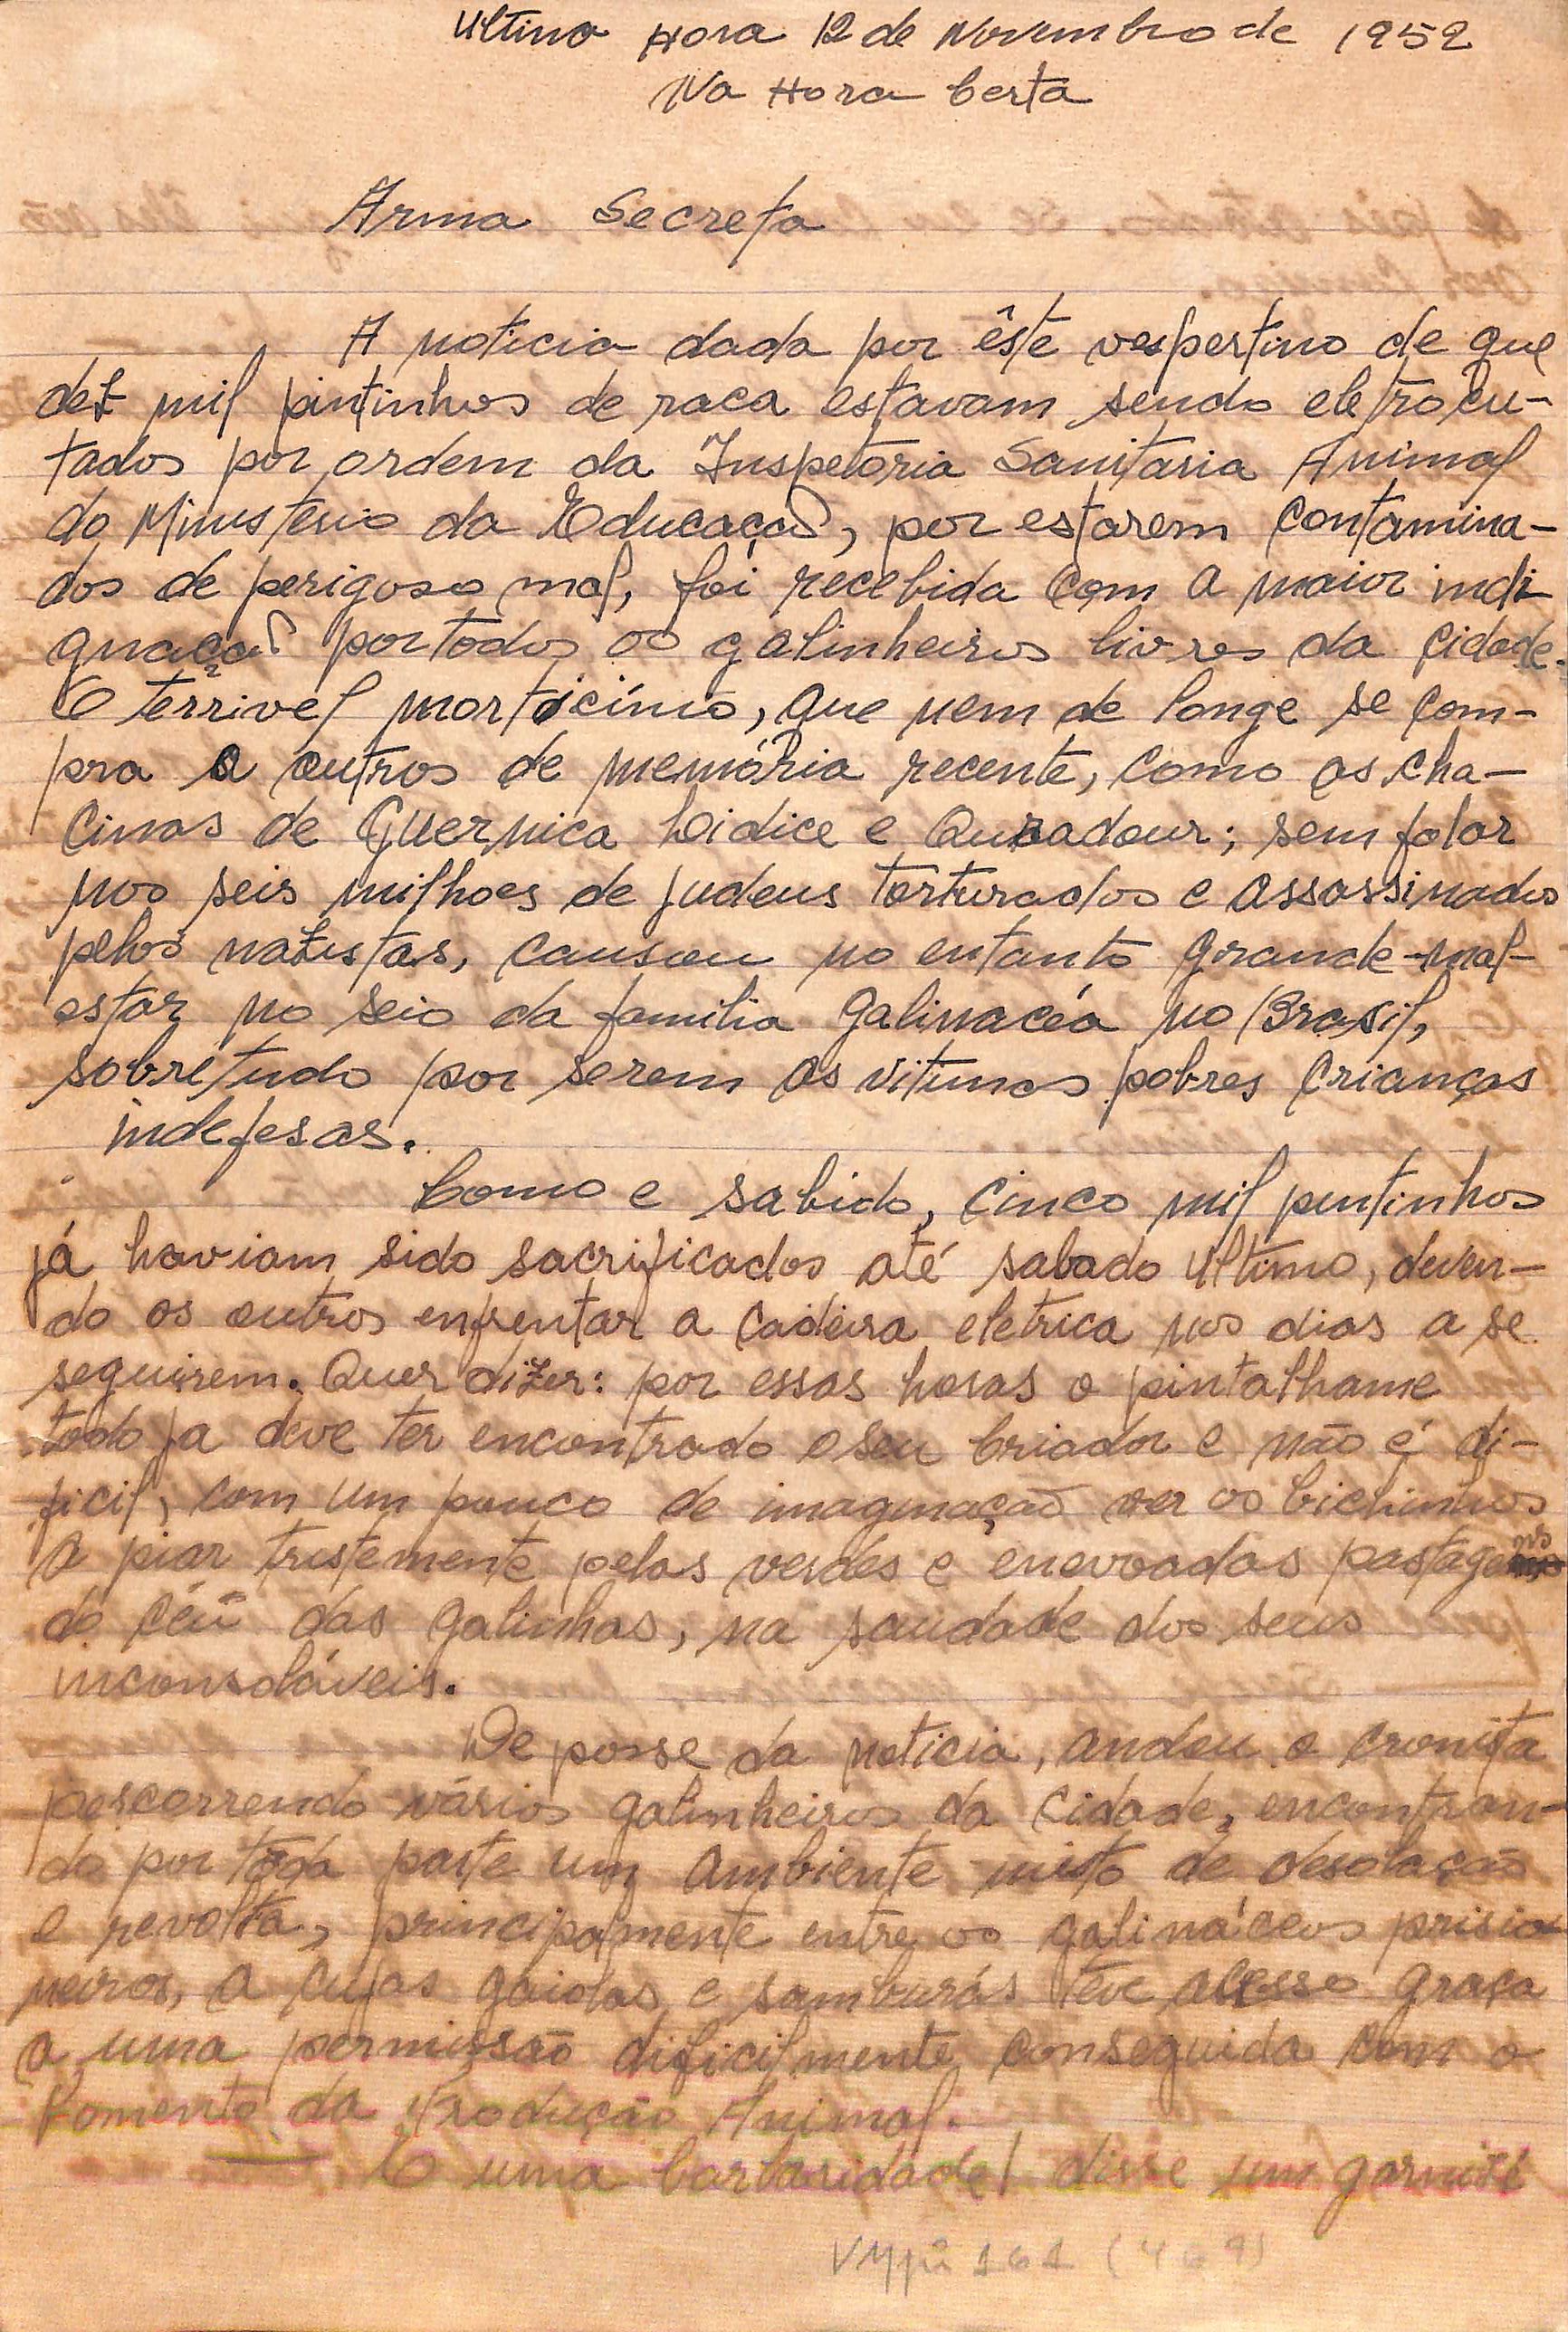 Ultima Hora 12 de Novembro de 1952
Na Hora Certa
Arma Secreta
A noticia dada por êste vespertino de que
dez mil pintinhos de raca estavam sendo eletrocu-
tados por ordem da Inspetoria Sanitaria Animal
do Ministerio da Educação, por estarem contamina-
dos de perigoso mal, foi recebida com a maior indi
gnação por todos os galinheiros livres da cidade.
O terrivel morticínio, que nem de longe se com-
pra a outros de memória recente, como as cha-
cinas de Guernica Lidice e Ouradour; sem falar
nos seis milhoes de judeus torturados e assassinados
pelos nazistas, causou no entanto grande mal-
estar no seio da familia galinacéa no Brasil,
sobretudo por serem as vitimas pobres crianças
indefesas.
Como e sabido, cinco mil pintinhos
já haviam sido sacrificados até sabado ultimo, deven-
do os outros enfrentar a cadeira eletrica nos dias a se
seguirem. Quer dizer: por essas horas o pintalhame
todo ja deve ter encontrado o seu Criador e não é di-
ficil, com um pouco de imaginação ver os bichinhos
a piar tristemente pelas verdes e enevoadas pastagens
do céu das galinhas, na saudade dos seus
inconsoláveis.
De posse da noticia, andou o cronista
percorrendo vários galinheiros da cidade, encontran-
do por toda parte um ambiente misto de desolação
e revolta, principalmente entre os galináceos prisio
neiros, a cujas gaiolas e samburás teve acesso graça
a uma permissão dificilmente conseguida com o
Fomento da Produção Animal.
— É uma barbaridade! disse um garnisé
161 (469)